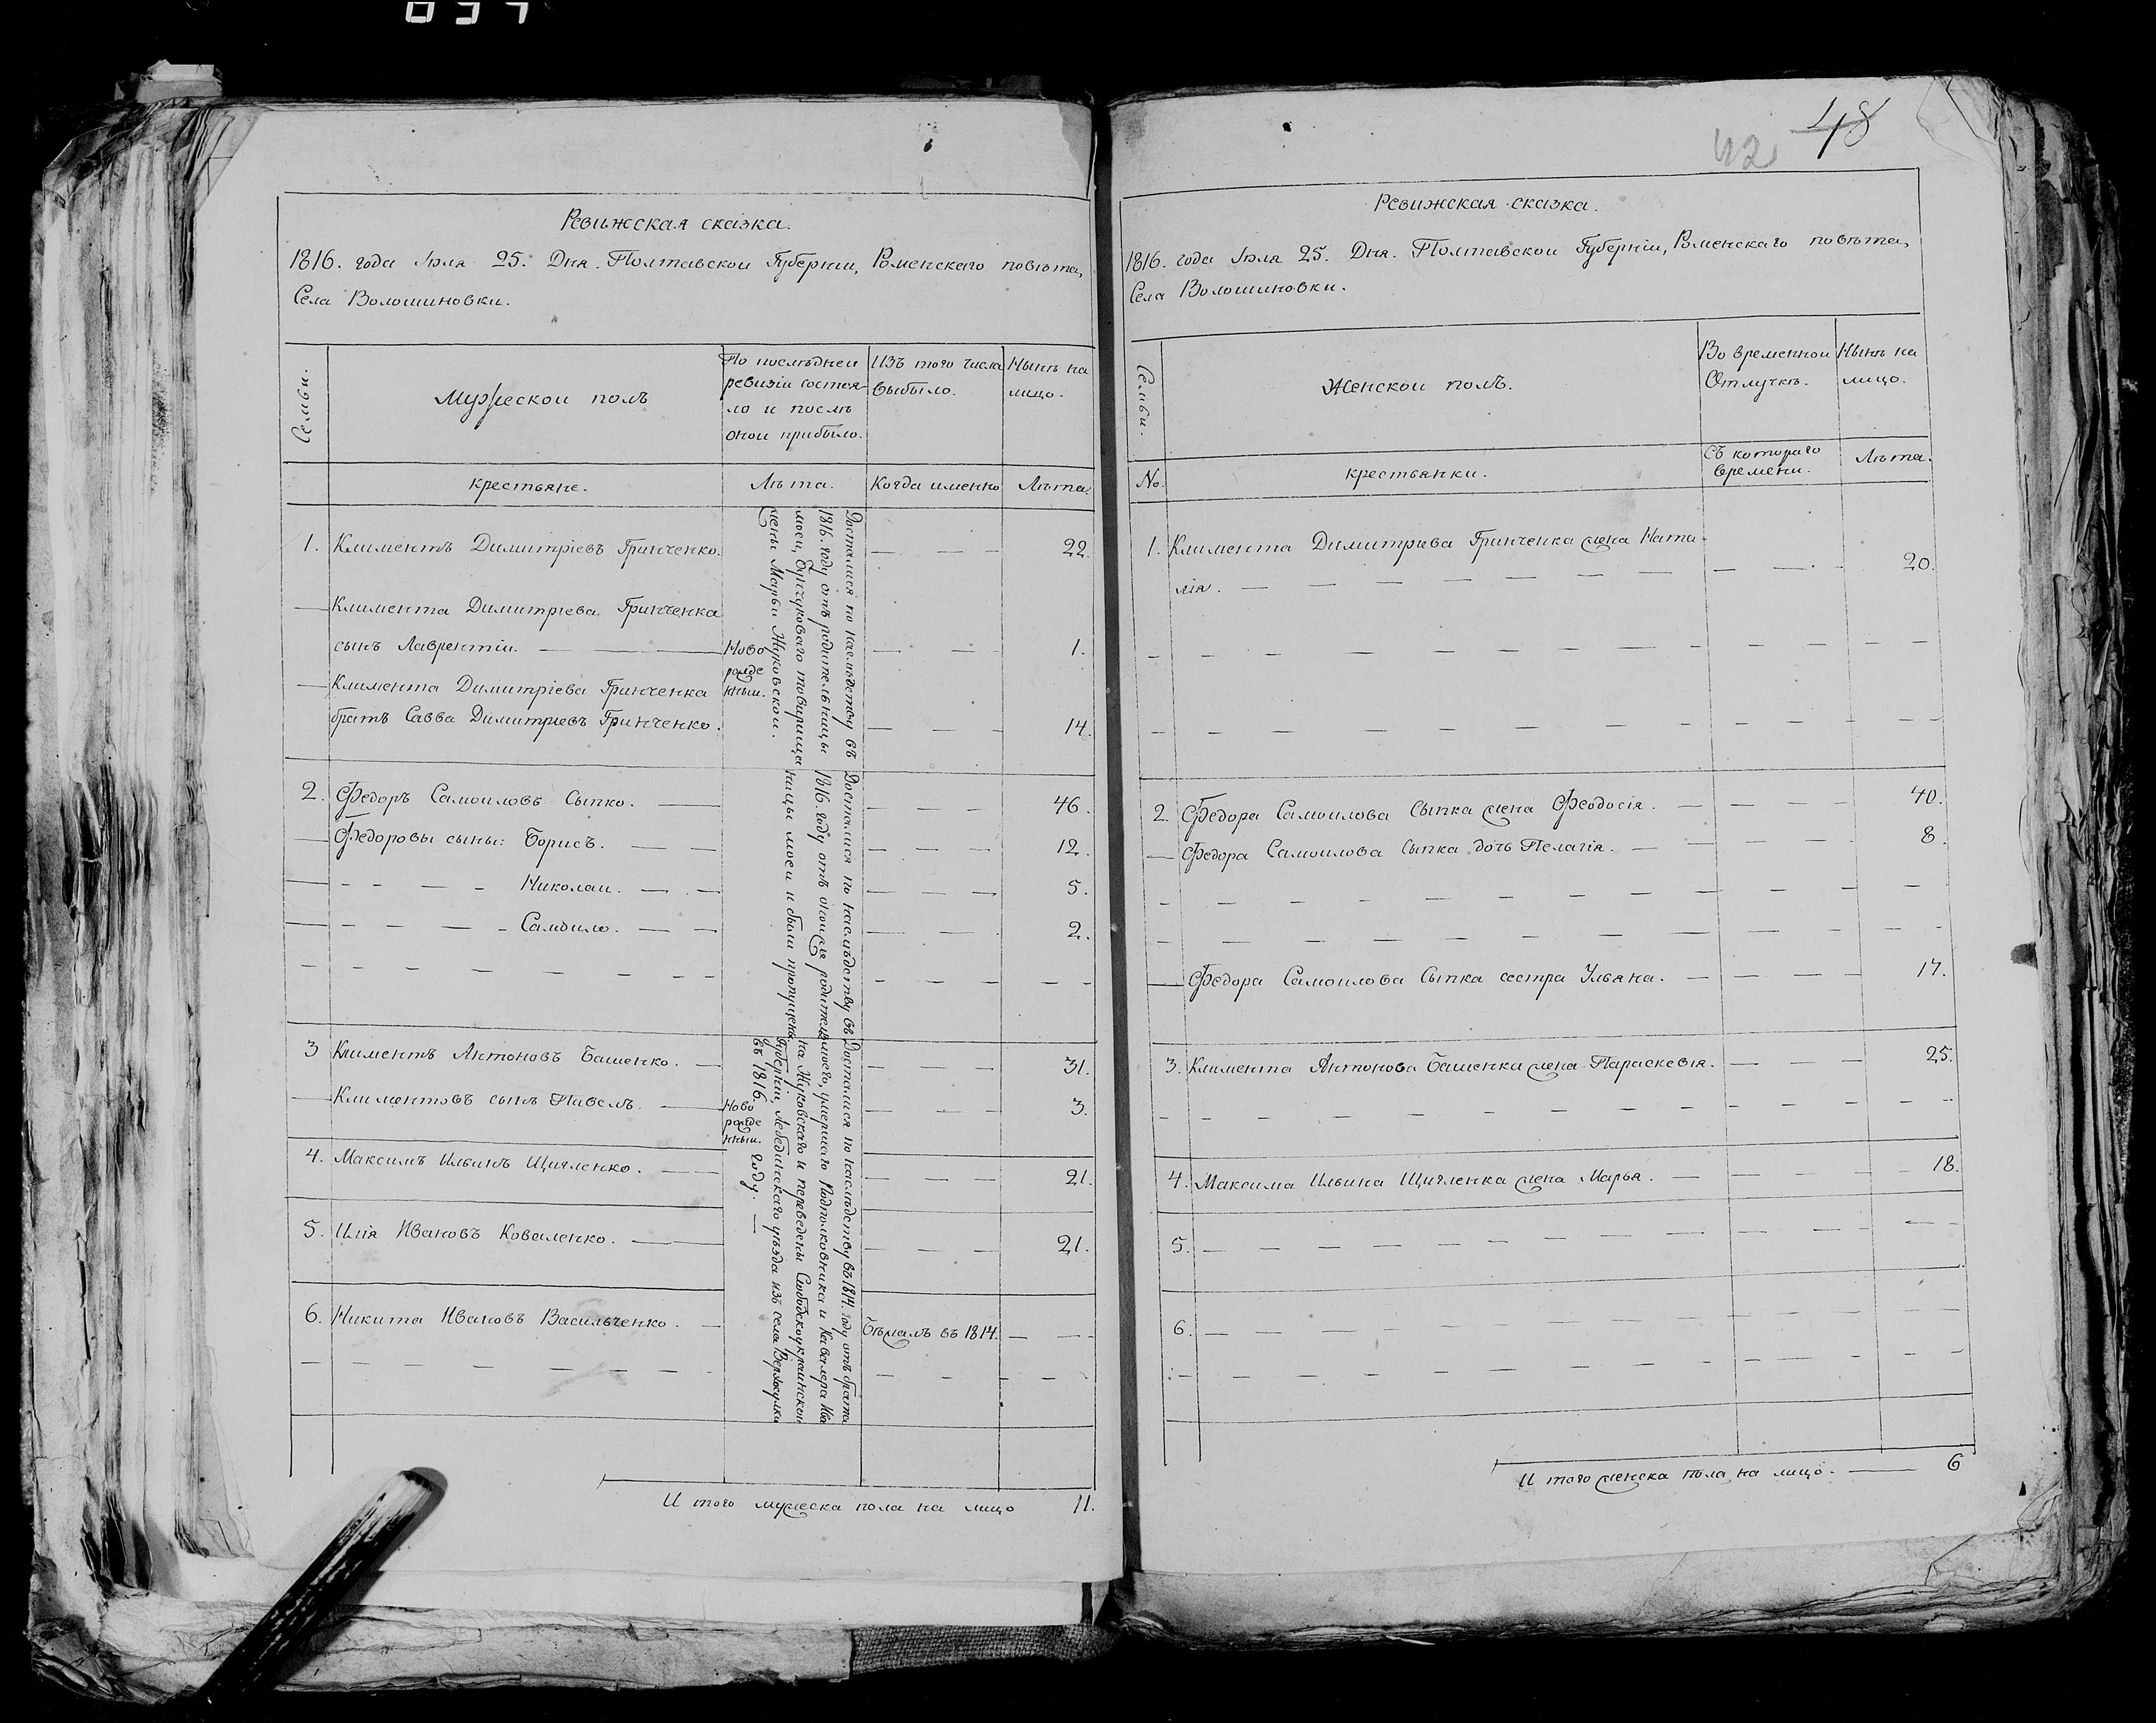 Ревижская сказка.
1816. года Іюля 25. Дня. Полтавской Губерніи, Роменскаго повѣта,
Села Волошиновки.
Семьи.
Мужеской полъ
По послѣдней
ревизіи состоя-
ло и послѣ
оной прибыло.
Изъ того числа
выбыло.
Нынѣ на
лицо.
крестьяне.
Лѣта.
Когда именно
Лѣта.
1. Климентъ Димитріевъ Гринченко. — — — 22.
— Климента Димитріева Гринченка
сынъ Лаврентій. — — Ново
рожде
нный. — — 1.
— Климента Димитріева Гринченка
братъ Савва Димитріевъ Гринченко. — — — 14.
Достался по наслѣдству въ
1816. году отъ родительницы
моей, бунчуковаго товарища
жены Марьи Жуковской.
2. Федоръ Самоиловъ Сыпко. — — — — 46.
— Федоровы сыны: Борисъ. — — — — — 12.
— Николай. — — — — 5.
— Самойло. — — — — 2.
Достался по наслѣдству въ
1816. году отъ оной же родитель
ницы моей и были пропущены
3 Климентъ Антоновъ Башенко. — — — 31.
— Климентовъ сынъ Павелъ. — Ново
рожде
нный. — — — 3.
4. Максимъ Ильинъ Щигленко. — — — — 21.
5. Илія Ивановъ Коваленко. — — — — 21.
6. Никита Ивановъ Васильченко. — Бѣжалъ въ 1814. — —
Достался по наслѣдству въ 1814. году отъ брата
моего, умершаго Подполковника и Кавалера Ива
на Жуковскаго и переведены Слободскоукраинской
Губерніи, Лебединскаго уѣзда изъ села Вержулки
въ 1816. году. —
И того мужеска пола на лицо 11.
42 48
Ревижская сказка.
1816. года Іюля 25. Дня. Полтавской Губерніи, Роменскаго повѣта,
Села Волошиновки.
Семьи.
Женской полъ.
Во временной
Отлучкѣ.
Нынѣ на
лицо.
No.
крестьянки.
Съ котораго
времени.
Лѣта.
1. Климента Димитрива Гринченка жена Ната-
лія. — — — 20.
2. Федора Самоилова Сыпка жена Феодосія. — — — 40.
— Федора Самоилова Сыпка дочь Пелагія. — — — 8.
— Федора Самоилова Сыпка сестра Ульяна. — — — 17.
3. Климента Антонова Башенка жена Параскевія. — — — 25.
4. Максима Ильина Щигленка жена Марья. — — — 18.
5. — — —
6. — — —
И того женска пола на лицо. — 6